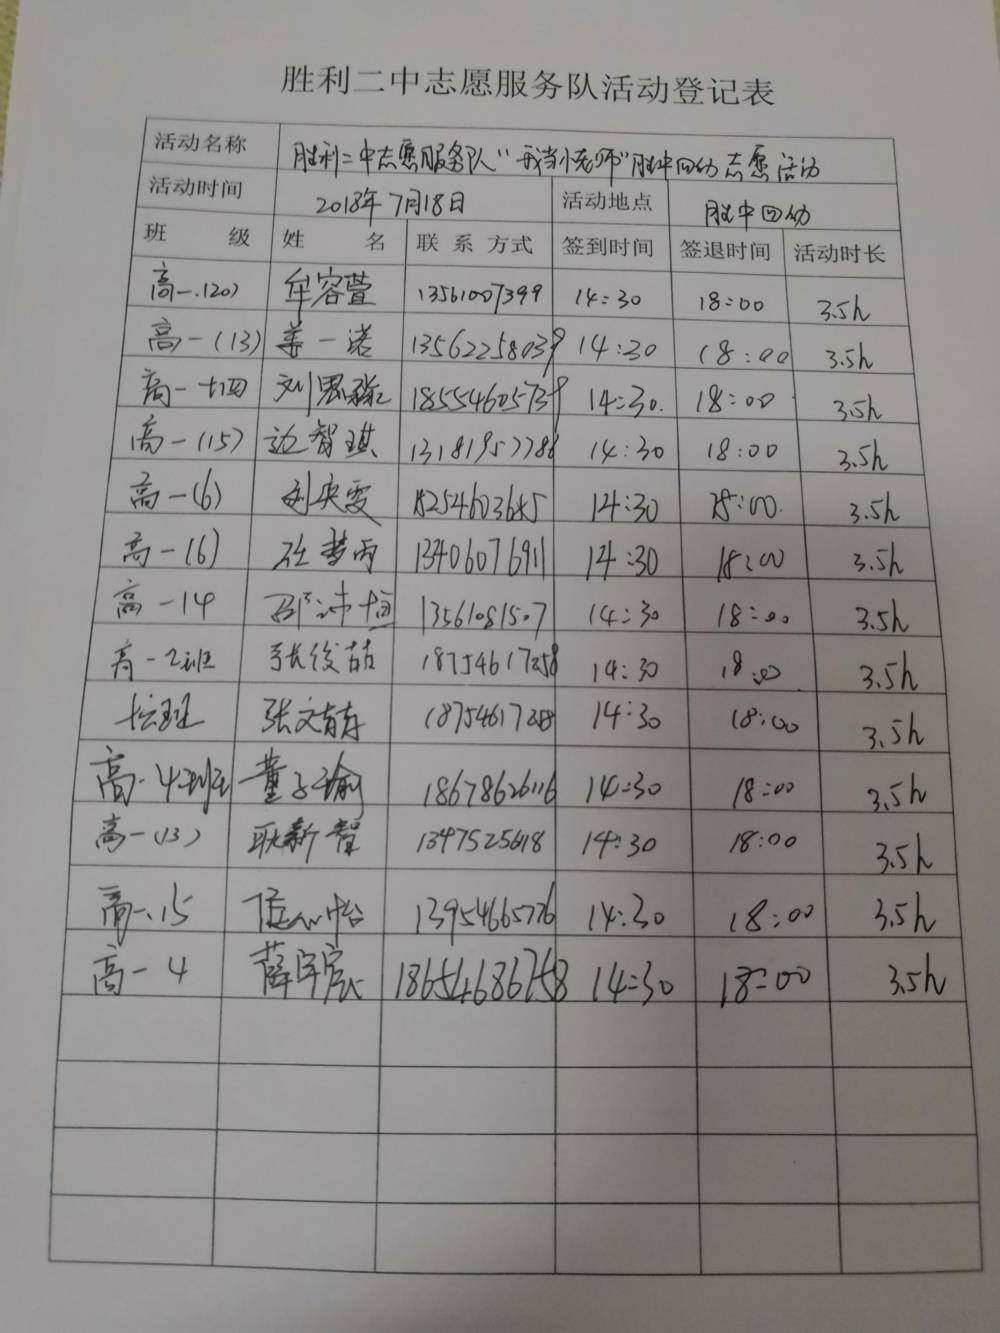 胜利二中志愿服务队活动登记表
活动名称 胜利二中志愿服务队"我当小老师"胜中四幼志愿活动
活动时间 2018年7月18日 活动地点 胜中四幼
班 级 姓 名 联 系 方式 签到时间 签退时间 活动时长
高一.(20) 牟容萱 13561007399 14:30 18:00 3.5h
高一(13) 姜一诺 13562258039 14:30 18:00 3.5h
高一十四 刘思 18554605739 14:30. 18:00 3.5h
高一(15) 边智琪 13181957788 14:30 18:00 3.5h
高一(6) 刘奕雯 18254603685 14:30 18:00. 3.5h
高一(6) 任梦雨 13406076911 14:30 18:00 3.5h
高一14 邵沛恒 13561081507 14:30 18:00 3.5h
高一2班 张俊喆 18754617258 14:30 18:00 3.5h
张文 14:30 18:00 3.5h
高一4班 董子瑜 18678626116 14:30 18:00 3.5h
高一(13) 耿新智 14:30 18:00 3.5h
高一.15 13954665776 14:30 18:00 3.5h
高一4 薛宇宸 18654686758 14:30 18:00 3.5h